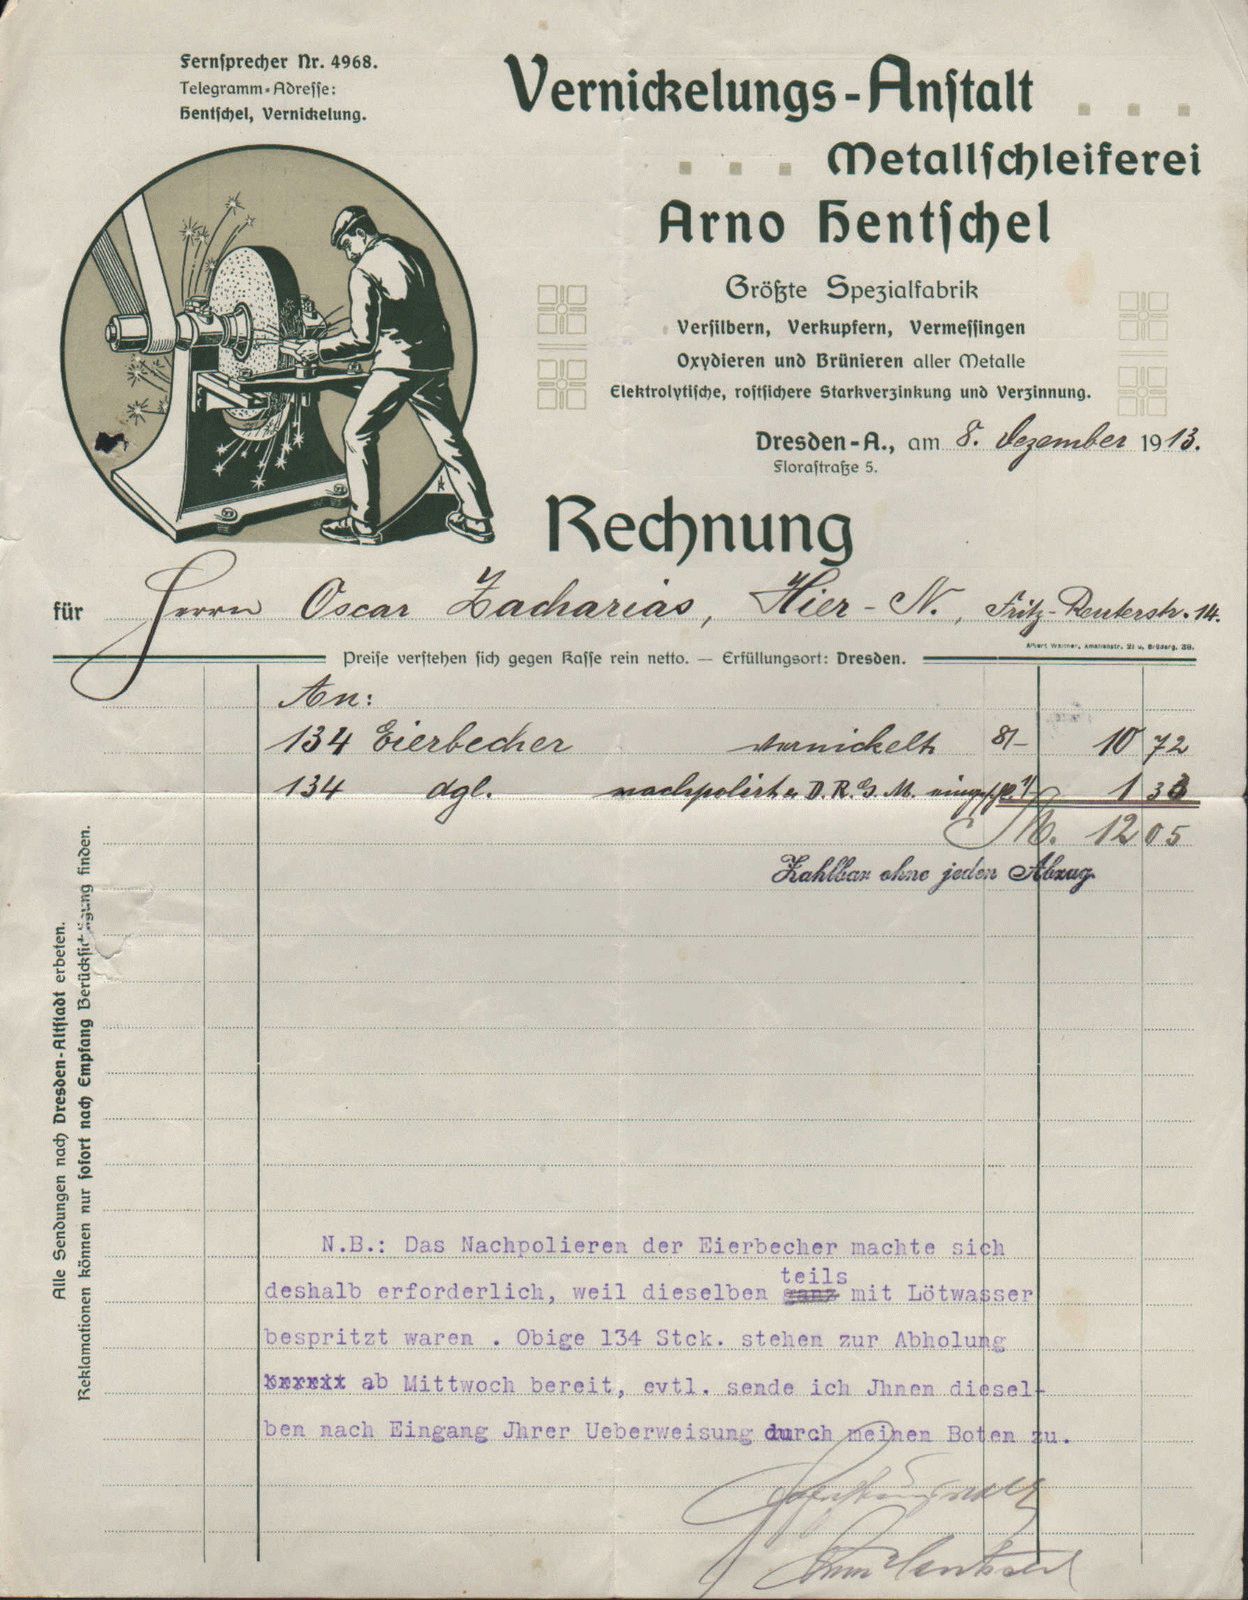 Fernsprecher Nr. 4968.
Telegramm-Adresse:
Hentschel, Vernickelung.
Vernickelungs-Anstalt
Metallschleiferei
Arno Hentschel
Größte Spezialfabrik
Versilbern, Verkupfern, Vermessingen
Oxydieren und Brünieren aller Metalle
Elektrolytische, rostsichere Starkverzinkung und Verzinnung.
Dresden-A., am 8. Dezember 1913.
Florastraße 5.
Rechnung
für Herrn Oscar Zacharias, Hier-N., Fritz-Reuterstr. 14.
Preise verstehen sich gegen Kasse rein netto. — Erfüllungsort: Dresden.
Albert Walther, Amalienstr. 21 u. Brüderg. 39.
An:
134 Eierbecher vernickelt 8/- 10 72
134 dgl. nachpoliert u. D.R.G.M. 1 33
M. 12 05
Zahlbar ohne jeden Abzug
Alle Sendungen nach Dresden-Altstadt erbeten.
Reklamationen können nur sofort nach Empfang Berücksichtigung finden.
N.B.: Das Nachpolieren der Eierbecher machte sich
deshalb erforderlich, weil dieselben teils ganz mit Lötwasser
bespritzt waren . Obige 134 Stck. stehen zur Abholung
ab Mittwoch bereit, evtl. sende ich Jhnen diesel-
ben nach Eingang Jhrer Ueberweisung durch meinen Boten zu.
Arno Hentschel